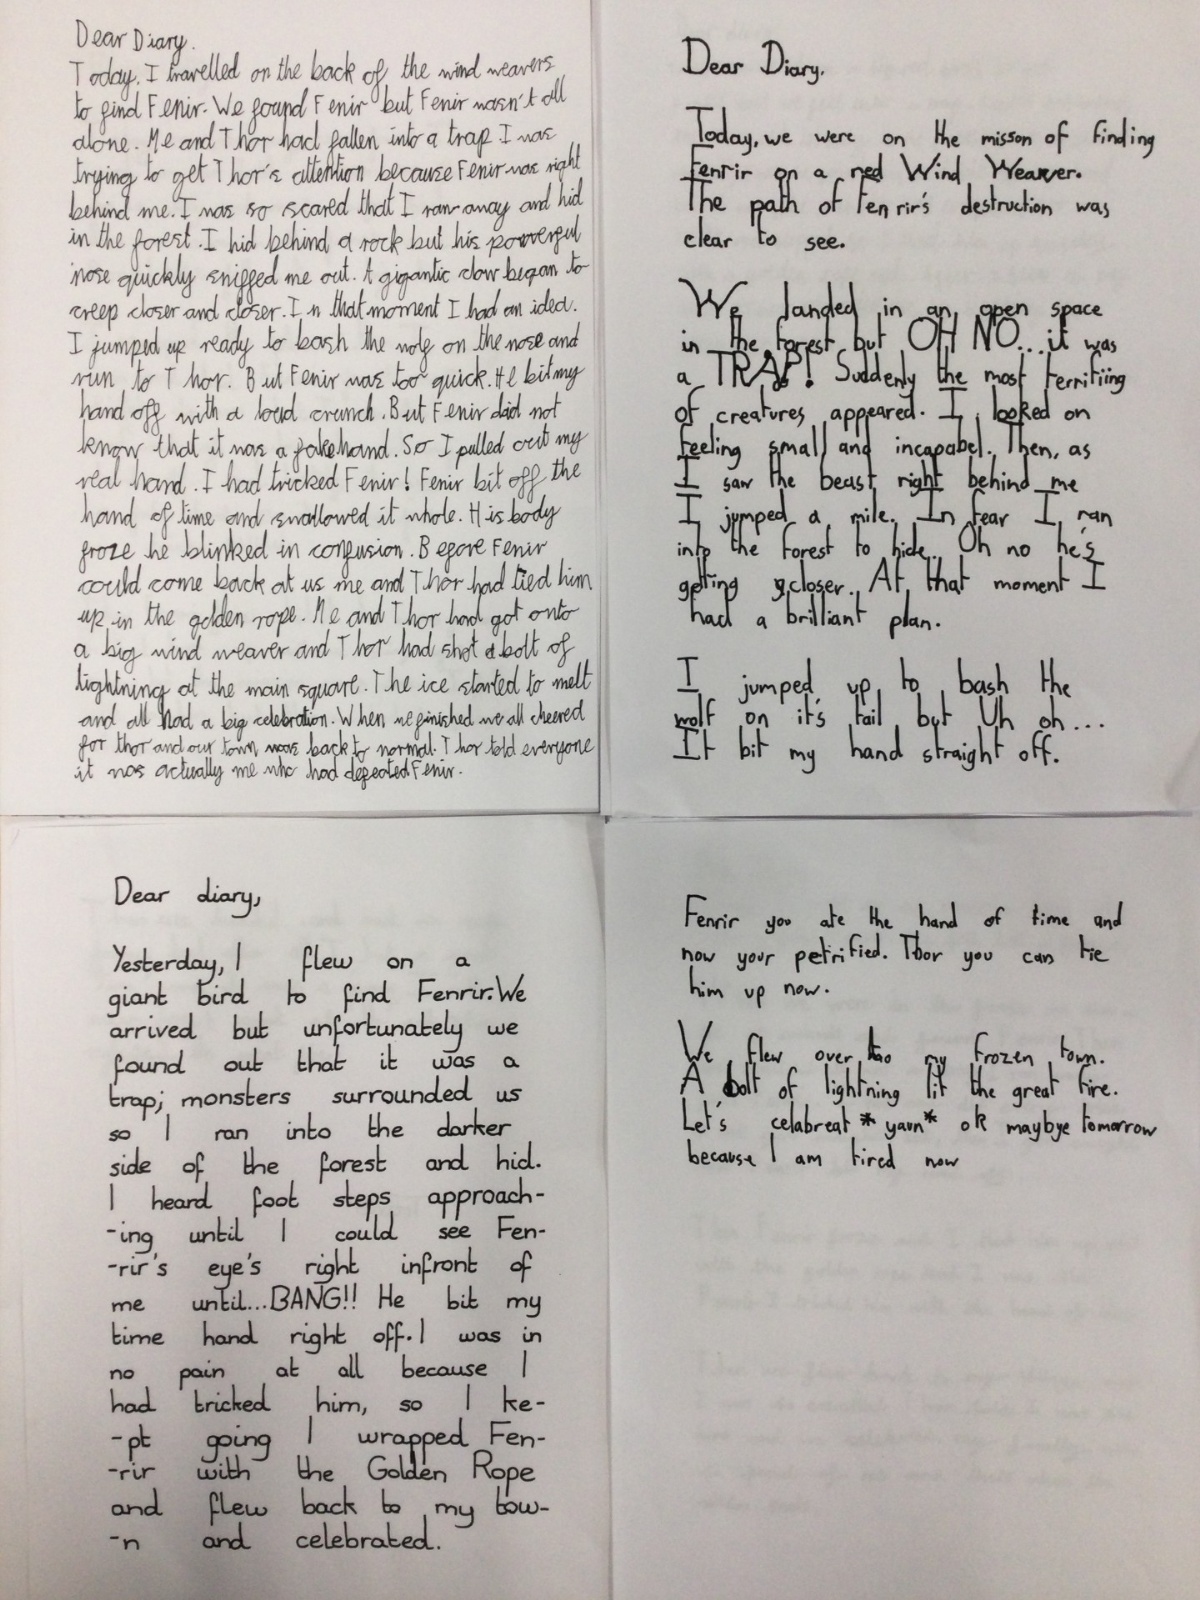 Dear Diary.
Today, I travelled on the back of the wind weavers
to find Fenir. We found Fenir but Fenir wasn't all
alone. Me and Thor had fallen into a trap I was
trying to get Thor's attention because Fenir was right
behind me. I was so scared that I ran away and hid
in the forest. I hid behind a rock but his powerful
nose quickly sniffed me out. A gigantic claw began to
creep closer and closer. In that moment I had an idea.
I jumped up ready to bash the wolf on the nose and
run to Thor. But Fenir was too quick. He bit my
hand off with a loud crunch. But Fenir did not
know that it was a fake hand. So I pulled out my
real hand. I had tricked Fenir! Fenir bit off the
hand of time and swallowed it whole. His body
froze he blinked in confusion. Before Fenir
could come back at us me and Thor had tied him
up in the golden rope. Me and Thor had got onto
a big wind weaver and Thor had shot a bolt of
lightning at the main square. The ice started to melt
and all had a big celebration. When we finished we all cheered
for thor and our town was back to normal. Thor told everyone
it was actually me who had defeated Fenir.
Dear Diary.
Today, we were on the misson of finding
Fenrir on a red Wind Weaver.
The path of Fenrir's destruction was
clear to see.
We landed in an open space
in the forest but OH NO... it was
a TRAP! Suddenly the most terrifiing
of creatures appeared. I looked on
feeling small and incapabel. Then, as
I saw the beast right behind me
I jumped a mile. In fear I ran
into the forest to hide. Oh no he's
getting closer. At that moment I
had a brilliant plan.
I jumped up to bash the
wolf on it's tail but Uh oh...
It bit my hand straight off.
Dear diary,
Yesterday, I flew on a
giant bird to find Fenrir. We
arrived but unfortunately we
found out that it was a
trap; monsters surrounded us
so I ran into the darker
side of the forest and hid.
I heard foot steps approach-
-ing until I could see Fen-
-rir's eye's right infront of
me until...BANG!! He bit my
time hand right off. I was in
no pain at all because I
had tricked him, so I ke-
-pt going I wrapped Fen-
-rir with the Golden Rope
and flew back to my tow-
-n and celebrated.
Fenrir you ate the hand of time and
now your petrified. Thor you can tie
him up now.
We flew over to my frozen town.
A bolt of lightning lit the great fire.
Let's celabreat *yaun* ok maybye tomorrow
because I am tired now